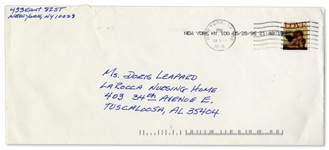 433 EAST 82ST
NEW YORK, NY 10028
NEW YORK NY 100 05/25/96
Ms. DORIS LEAPARD
LAROCCA NURSING HOME
403 34TH AVENUE E.
TUSCALOOSA, AL 35404